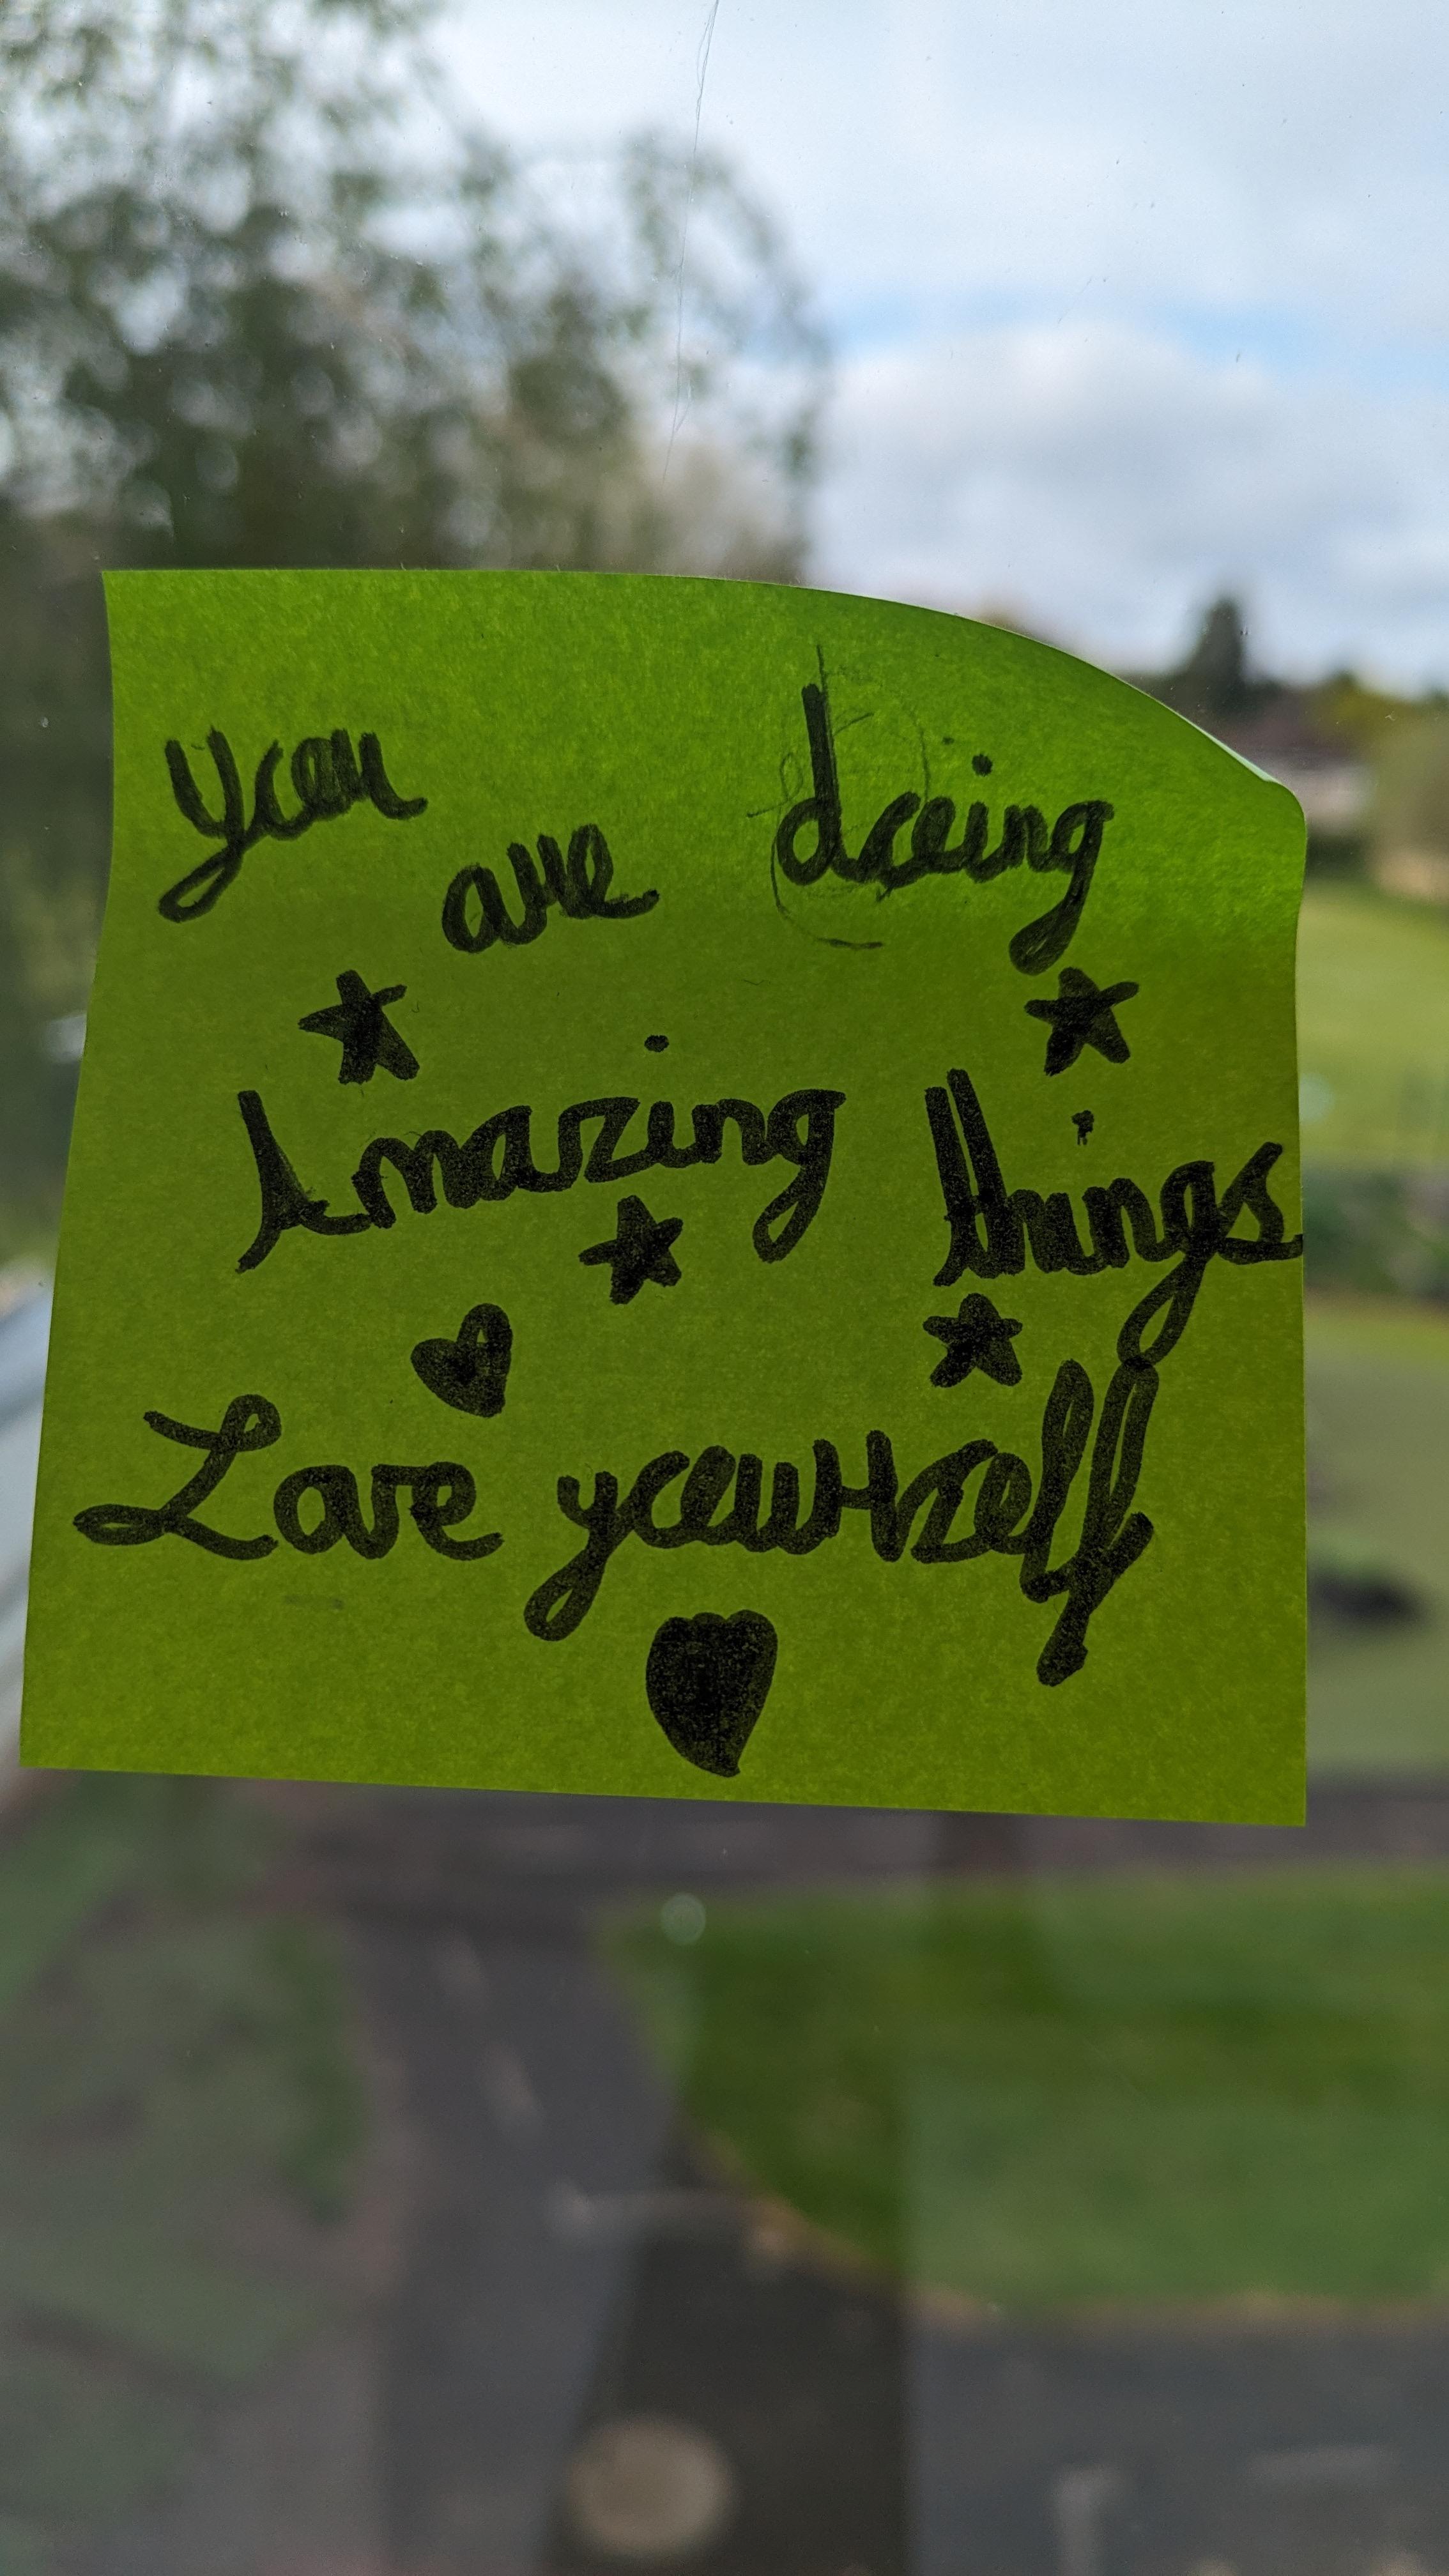 you are doing
Amazing things
Love yourself